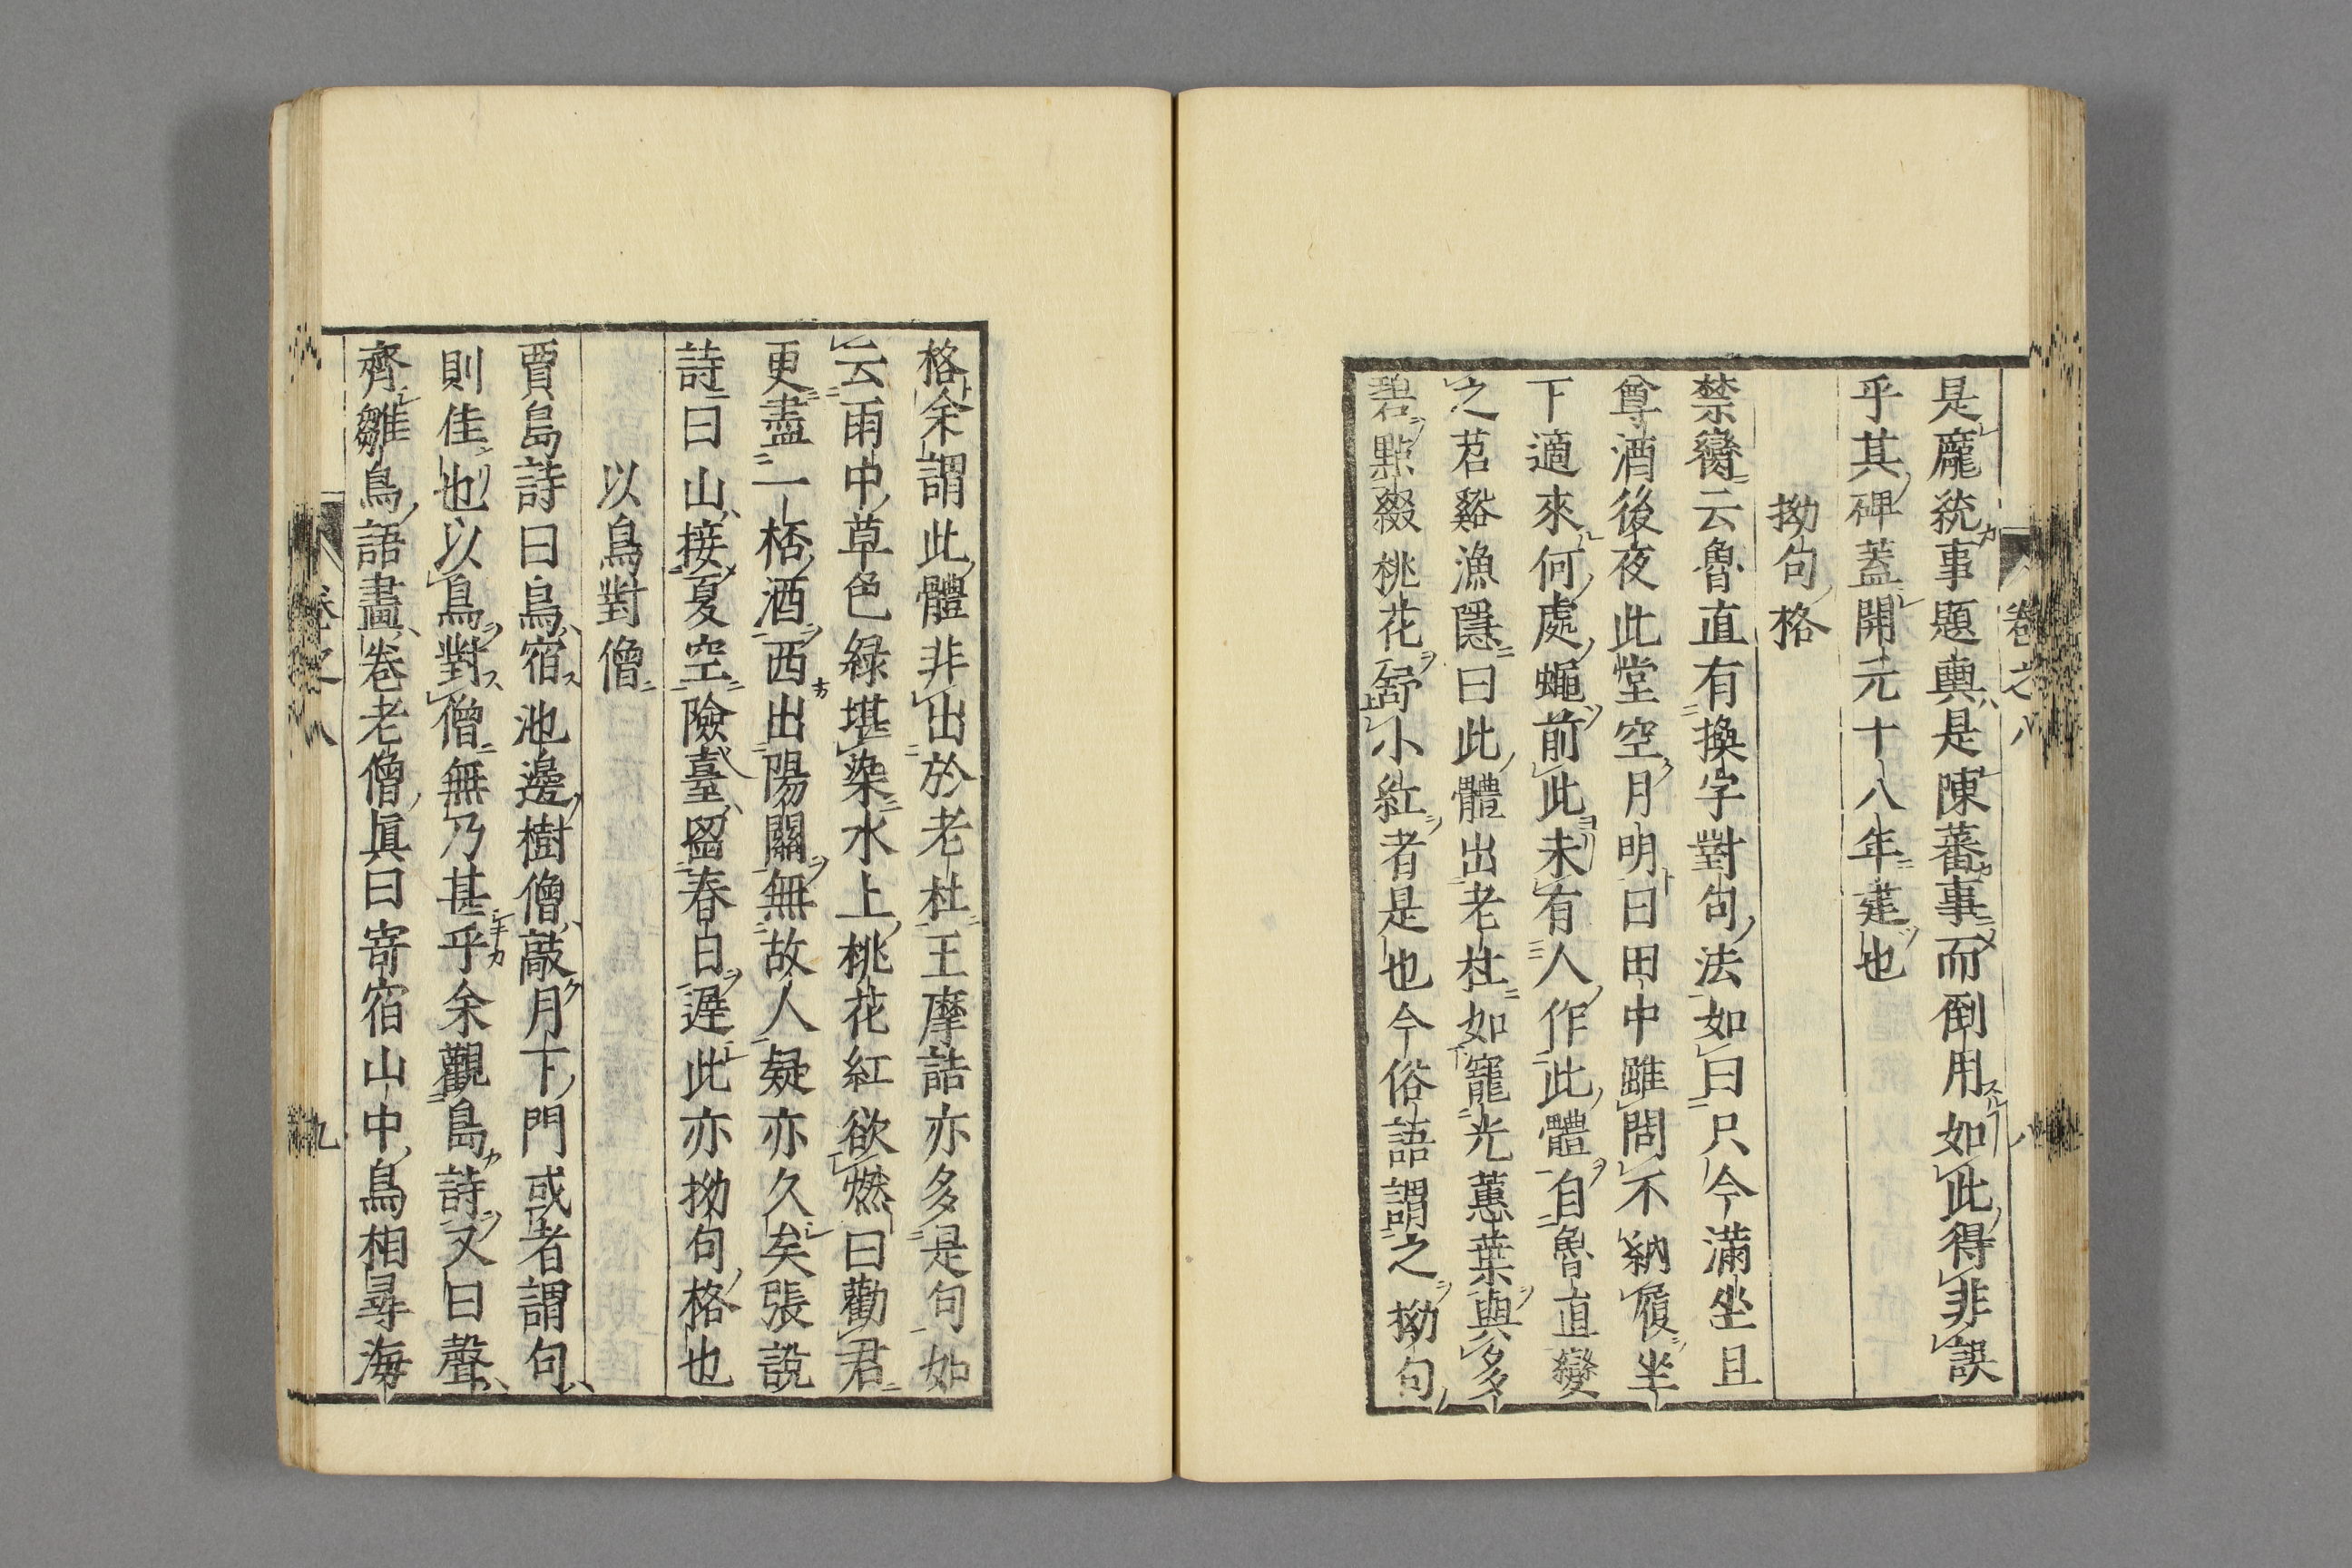 是龐統事題輿是陳蕃事而倒用如此得非誤
乎其碑蓋開元十八年莚也
拗句格
禁臠云魯直有換字對句法如曰只今滿坐且
尊酒後夜此堂空月明曰田中雖問不納履坐
下適來何處蠅前此未有人作此體自魯直變
之苕谿漁隱曰此體出老杜如寵光蕙葉與多
碧點綴桃花舒小紅者是也今俗語謂之拗句
格余謂此體非出於老杜王摩詰亦多是句如
云雨中草色綠堪染水上桃花紅欲燃曰勸君
更盡一桮酒西出陽關無故人疑亦久矣張說
詩曰山接夏空險臺留春日遲此亦拗句格也
以鳥對僧
賈島詩曰鳥宿池邊樹僧敲月下門或者謂句
則佳也以鳥對僧無乃甚乎余觀島詩又曰聲
齊雛鳥語畫卷老僧眞曰寄宿山中鳥相尋海
卷之八
八
卷之八
九